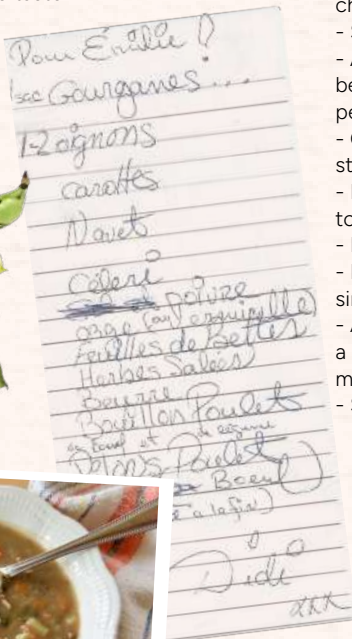 Pour Émilie !
1 sac Gourganes...
1-2 oignons
carottes
Navet
Céleri
poivre
orge (ou
Feuilles de bettes
Herbes Salées
Beurre
Bouillon Poulet
ou boeuf et
Poulet
Boeuf)
à la fin)
Didi
xxx
ch
- S
- A
be
pe
- C
st
to
-
si
- A
a
m
- S